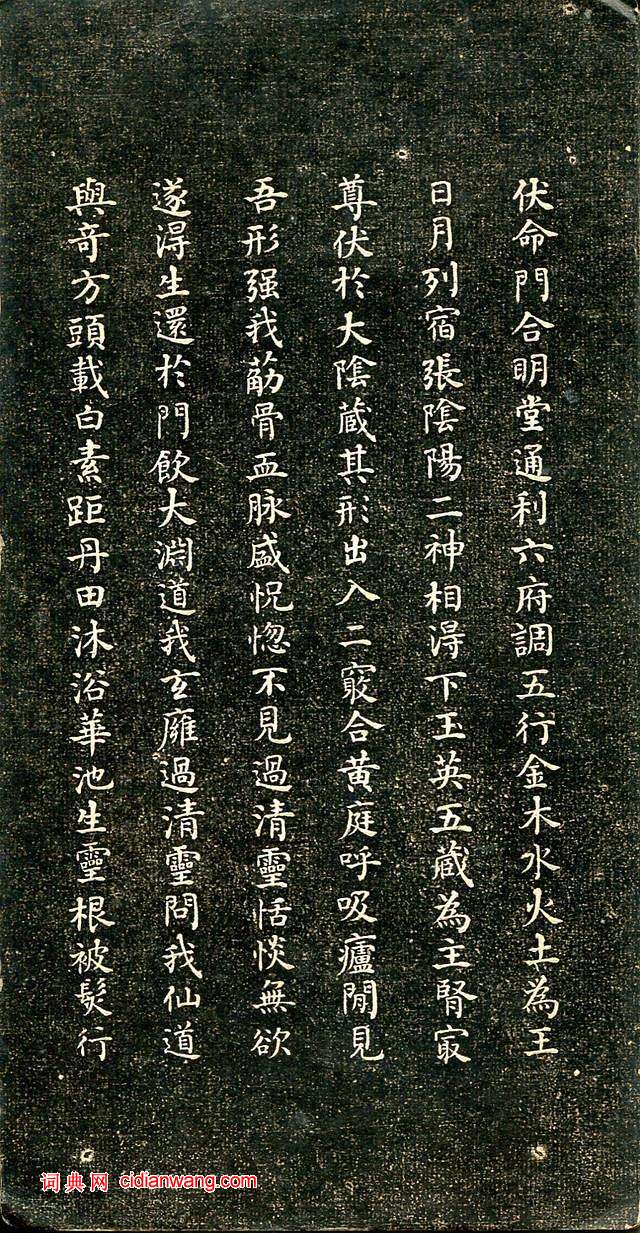 伏命門合明堂通利六府調五行金木水火土為王
日月列宿張陰陽二神相淂下玉英五藏為主腎㝡
尊伏扵大陰藏其形出入二竅合黄庭呼吸廬閒見
吾形强我葪骨血脉盛怳惚不見過清靈恬惔無欲
遂淂生還扵門飲大淵道我玄廱過清靈問我仙道
與竒方頭載白素距丹田沐浴華池生靈根被髮行
词典网 cidianwang.com